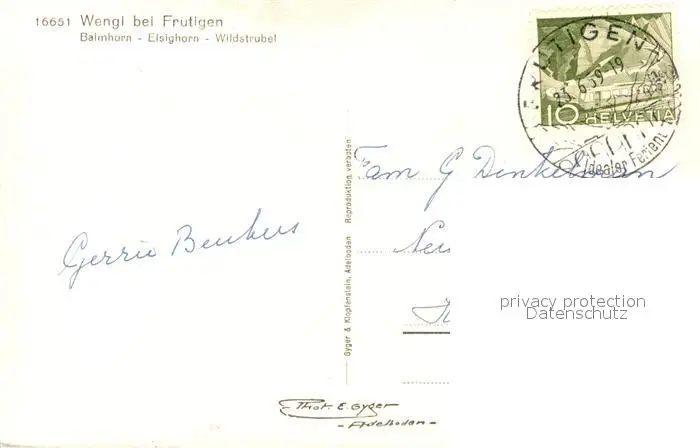 16651 Wengi bei Frutigen
Balmhorn - Elsighorn - Wildstrubel
FRUTIGEN
23.6.59-19
10 HELVETIA
Idealer Ferienort
Fam G
Gerrie
Gyger & Klopfenstein, Adelboden Reproduktion verboten
privacy protection
Datenschutz
Phot. E. Gyger
- Adelboden -